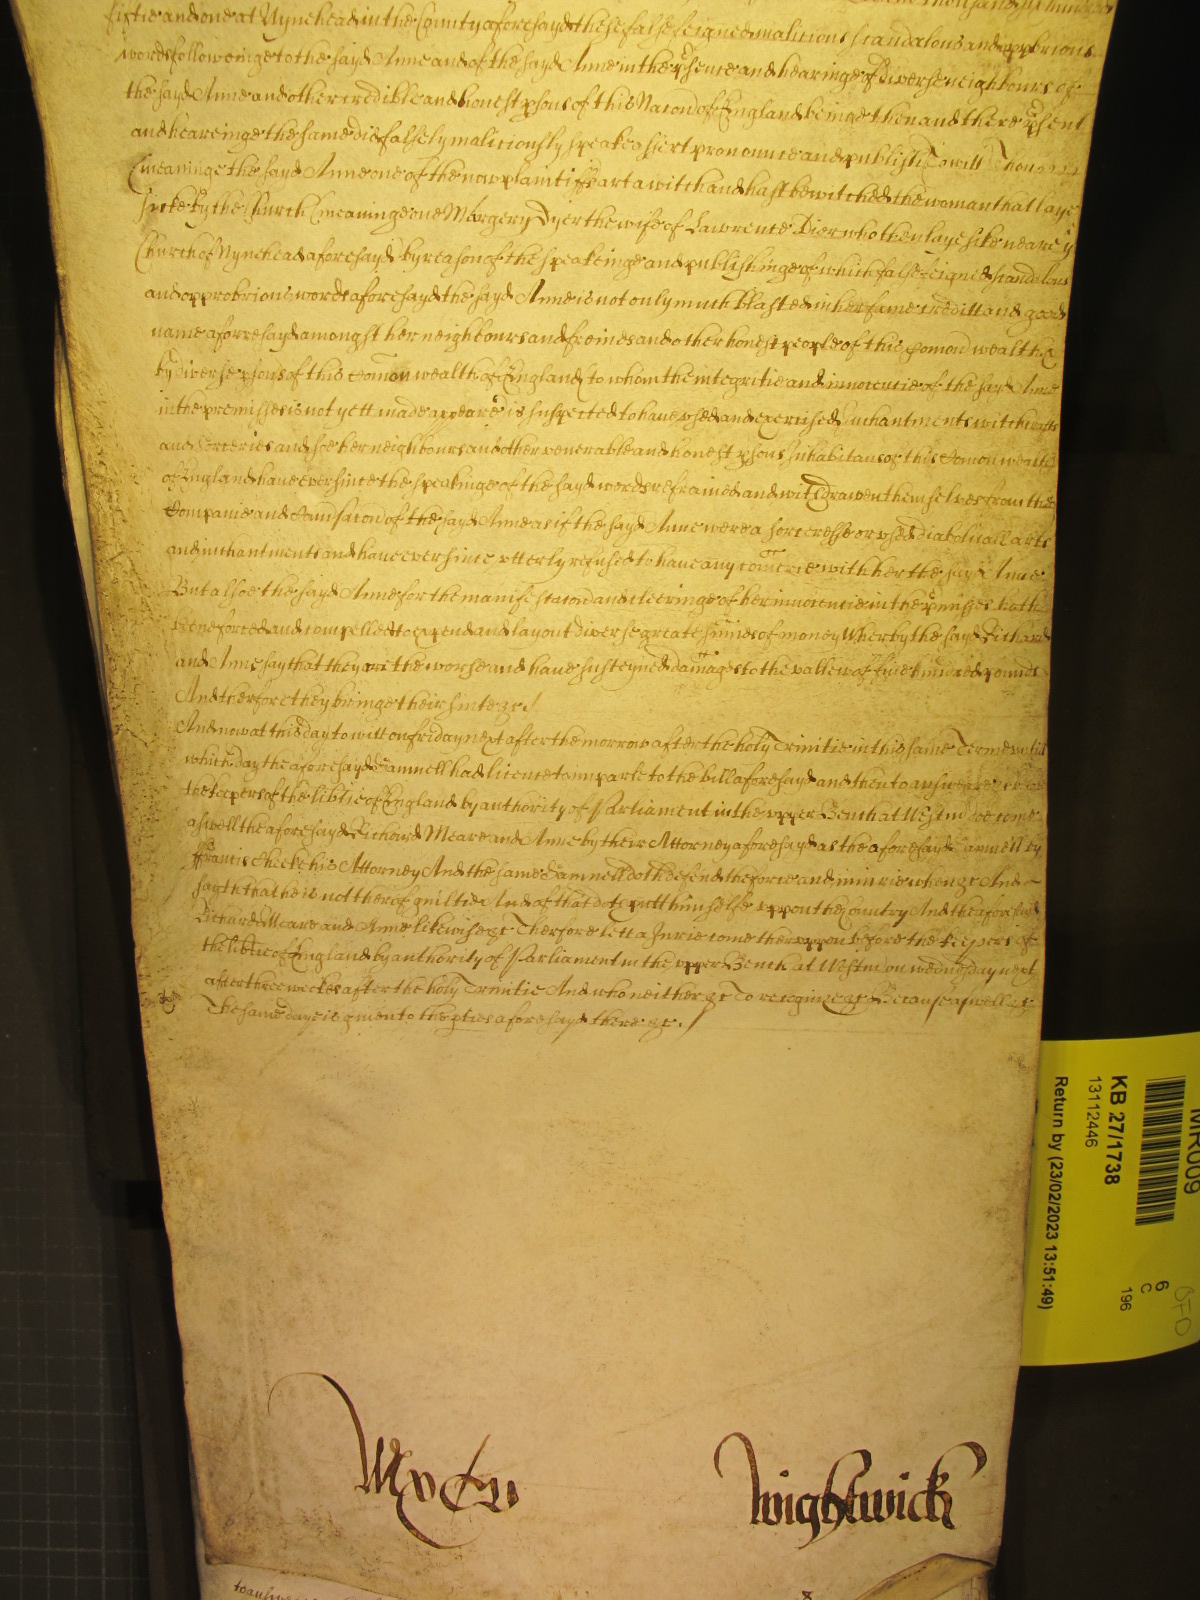 fiftie and one at Nynehead in the County aforesayd these false feigned malitious scandalous and opprbrious
words followeinge to the sayd Anne and of the sayd Anne in the psence and hearinge of diverse neighbours of
the sayd Anne and other credible and honest psons of this Nacon of England beinge then and there psent
and heareinge the same did falsely malitiously speake assert pronounce and publish To witt Thou
(meaninge the sayd Anne one of the now plaintiffs) art a witch and hast bewitched the woman that laye
sicke by the Church (meaninge one Margery Dyer the wife of Lawrence Dier who then laye sike neare y
Church of Nynehead aforesayd) by reason of the speakeinge and publishinge of which false feigned scandalous
and opprobrious words aforesayd the sayd Anne is not only much blasted in her fame creditt and good
name aforesayd amongst her neighbours and freinds and other honest people of this Comon wealth
by diverse psons of this Comon wealth of England (to whom the integritie and innocencie of the sayd Anne
in the premisses is not yett made appeare) is suspected to have vsed and exercised Inchantments witchcrafts
and Sorceries and soe her neighbours and other venerable and honest psons Inhabitans of this Comon wealth
of England have ever since the speakinge of the sayd words refrained and withdrawen themselves from the
Companie and of the sayd Anne as if the sayd Anne were a sorceresse or vsed diabolicall arts
and inchantments and have ever since vtterly refused to have any comerce with her the sayd Anne
But alsoe the sayd Anne for the manifestacon and cleeringe of her innocencie in the pmisses hath
bene forced and compelled to expend and lay out diverse greate sumes of money Wherby the sayd Richard
and Anne say that they are the worse and have susteyned damages to the vallew of five hundred pounds
And therfore they bringe their suite &c /
And now at this day to witt on friday next after the morrow after the holy Trinitie in this same Terme vntill
which day the aforesayd Samuell had licence to imparle to the bill aforesayd and then to answere &c before
the keepers of the libtie of England by authority of Parliament in the vpper Bench at Westm doe come
aswell the aforesayd Richard Meare and Anne by their Attorney aforesayd as the aforesayd Samuell by
ffrancis Cheeke his Attorney And the same Samuell doth defend the force and iniurie when &c And
sayth that he is not therof guiltie And of that doth putt himselfe vppon the Country And the aforesayd
Richard Meare and Anne likewise &c Therfore lett a Jurie come thervppon before the keepers of
the libtie of England by authority of Parliament in the vpper Bench at Westm on wednesday next
after three weekes after the holy Trinitie And who neither &c To recognize &c Because aswell &c
The same daye is given to the pties aforesayd there &c /
Wightwick
KB 27/1738
13112446
Return by (23/02/2023 13:51:49)
MR009
6
C
196